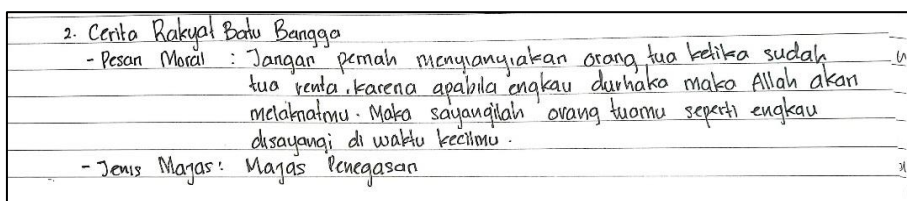 2. Cerita Rakyat Batu Bangga
- Pesan Moral : Jangan pernah menyianyiakan orang tua ketika sudah
tua renta, karena apabila engkau durhaka maka Allah akan
melaknatmu. Maka sayangilah orang tuamu seperti engkau
disayangi di waktu kecilmu.
- Jenis Majas : Majas Penegasan